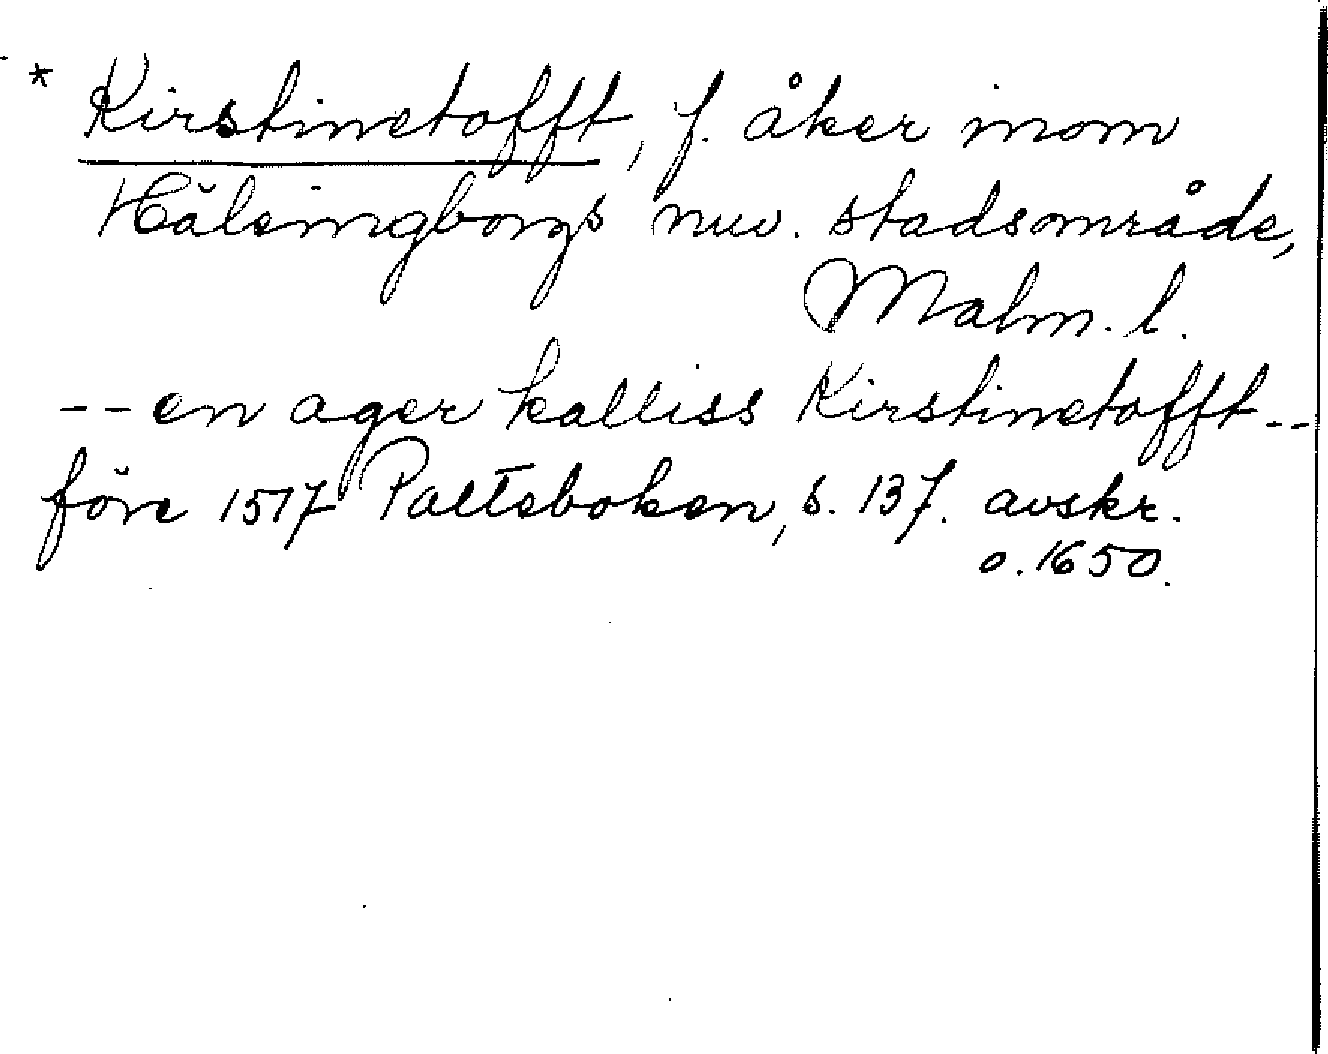 * Kirstinetofft, f. åker inom
Hälsingborgs nuv. stadsområde,
Malm. l.
-- en ager kalliss Kirstinetofft --
före 1517 Paltseboken, s. 137. avskr.
o. 1650.